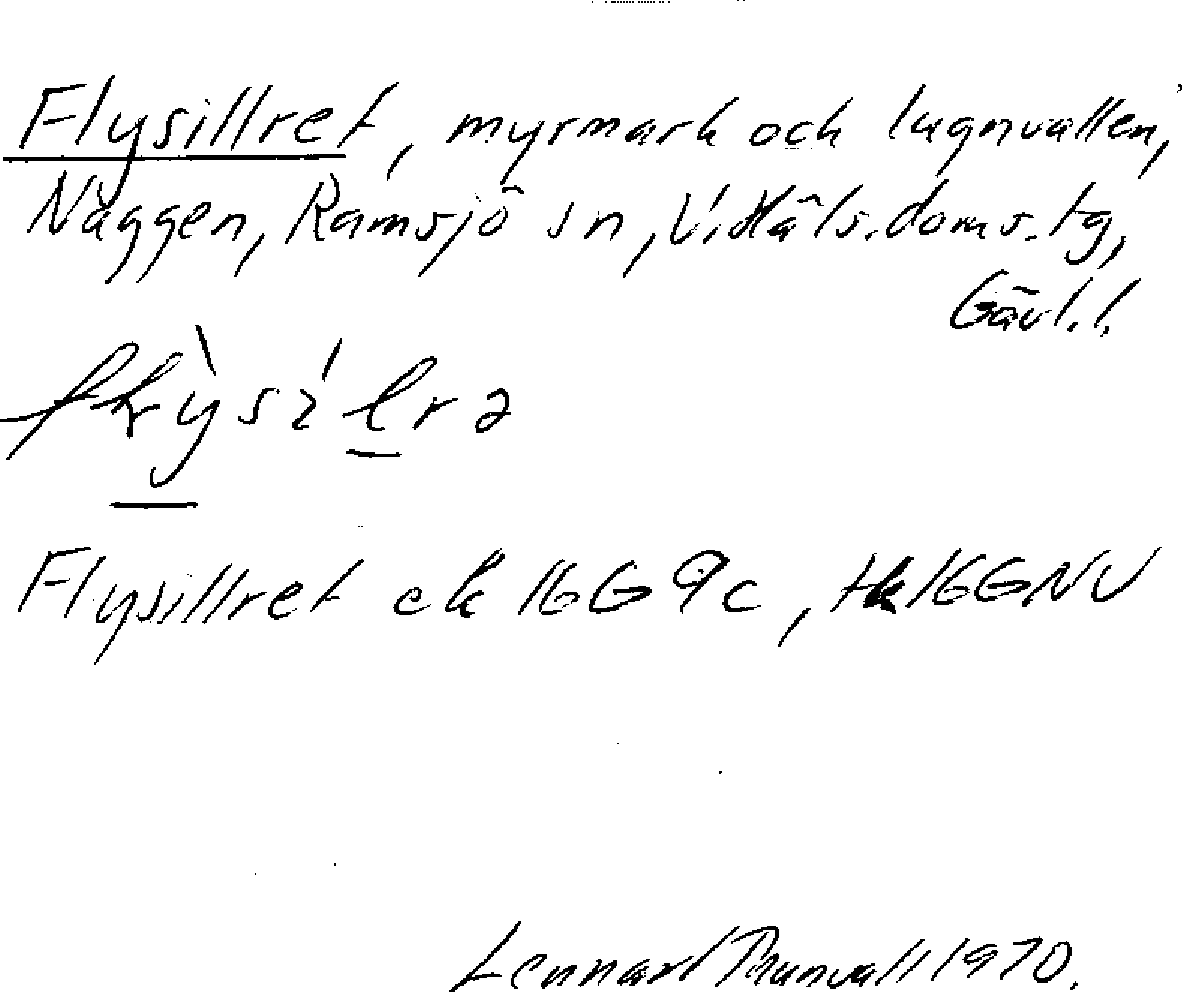 Flysillret, myrmark och lugnvallen,
Näggen, Ramsjö sn, V. Häls. doms. tg,
Gävl. l.
Flysillret ek 16G 9c, tk 16GNV
Lennart Thunvall 1970.